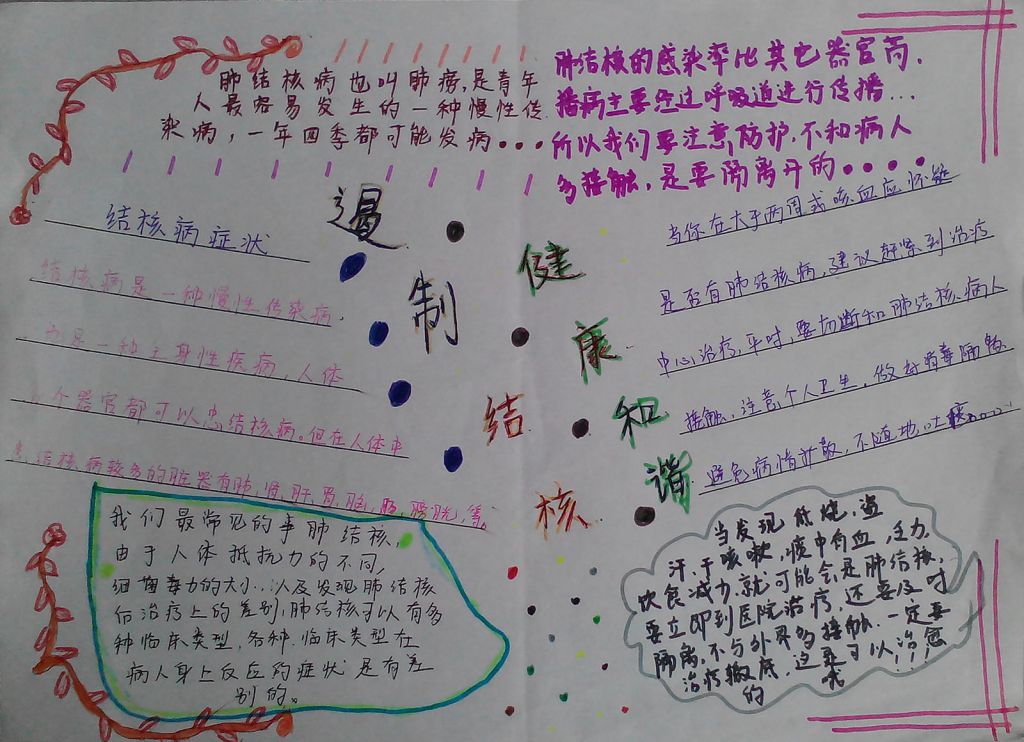 肺结核病也叫肺痨,是青年
人最容易发生的一种慢性传
染病，一年四季都可能发病...
肺结核的感染率比其它器官高,
播病主要经过呼吸道进行传播...
所以我们要注意防护.不和病人
多接触,是要隔离开的....
遏制结核
健康和谐
结核病症状
结核病是一种慢性传染病,
也是一种全身性疾病,人体
各个器官都可以患结核病。但在人体中
患结核病较多的脏器有肺,肾,肝,胃,脑,肠,膀胱,等。
当你在大于两周或咳血应怀疑
是否有肺结核病,建议赶紧到治疗
中心治疗,平时,要切断和肺结核病人
接触,注意个人卫生,做好消毒隔离
避免病情扩散,不随地吐痰......
我们最常见的事肺结核,
由于人体抵抗力的不同,
细菌毒力的大小..以及发现肺结核
后治疗上的差别,肺结核可以有多
种临床类型,各种临床类型在
病人身上反应的症状是有差
别的。
当发现低烧,盗
汗,干咳嗽,痰中有血,乏力,
饮食减少,就可能会是肺结核.
要立即到医院治疗,还要及时
隔离,不与外界多接触.一定要
治疗彻底,这是可以治愈
的哦!!!